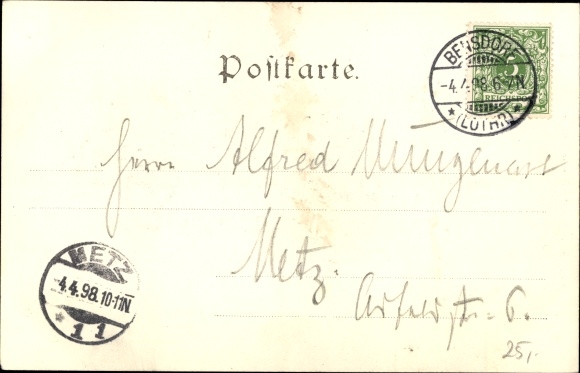 Postkarte.
BENSDORF
-4.4.98.6-7N
* (LOTHR) *
5
REICHSPO
Herrn Alfred Mungenast
Metz.
str. 6.
METZ
4.4.98.10-11N
* 1 1
25,-